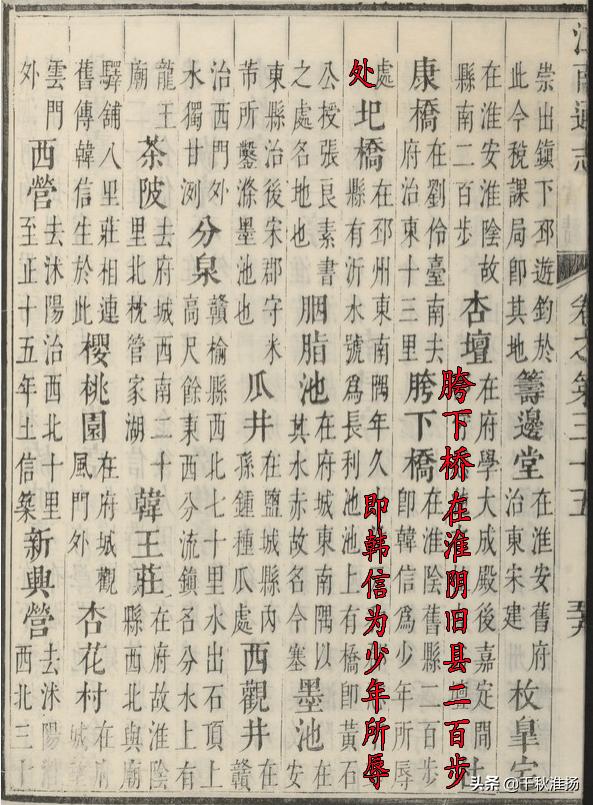 江南通志
卷之第三十五
崇出鎮下邳遊鈞於
此今稅課局即其地
籌邊堂
在淮安舊府
治東宋建
枚皋宅
在淮安淮陰故
縣南二百步
杏壇
在府學大成殿後嘉定間
杜
康橋
在劉伶臺南去
府治東十三里
胯下橋
在淮陰舊縣二百步
即韓信爲少年所辱
處
圯橋
在邳州東南隅年久
縣有沂水號爲長利池池上有橋即黃石
公授張良素書
之處名地也
胭脂池
在府城東南隅以
其水赤故名今塞
墨池
在
安
東縣治後宋郡守米
芾所鑿滌墨池也
瓜井
在鹽城縣內
孫鍾種瓜處
西觀井
在
贛
治西門外
水獨甘洌
分泉
贛榆縣西北七十里水出石頂上
高尺餘東西分流鎮名分水上有
龍王
廟
茶陂
去府城西南二十
里北枕管家湖
韓王莊
在府故淮陰
縣西北與廟
驛舖八里莊相連
舊傳韓信生於此
櫻桃園
在府城觀
風門外
杏花村
在
城
雲門
外
西營
去沭陽治西北十里
至正十五年土信築
新興營
去沭陽
西北三十
胯下桥在淮阴旧县二百步
即韩信为少年所辱
处
头条 @千秋淮扬